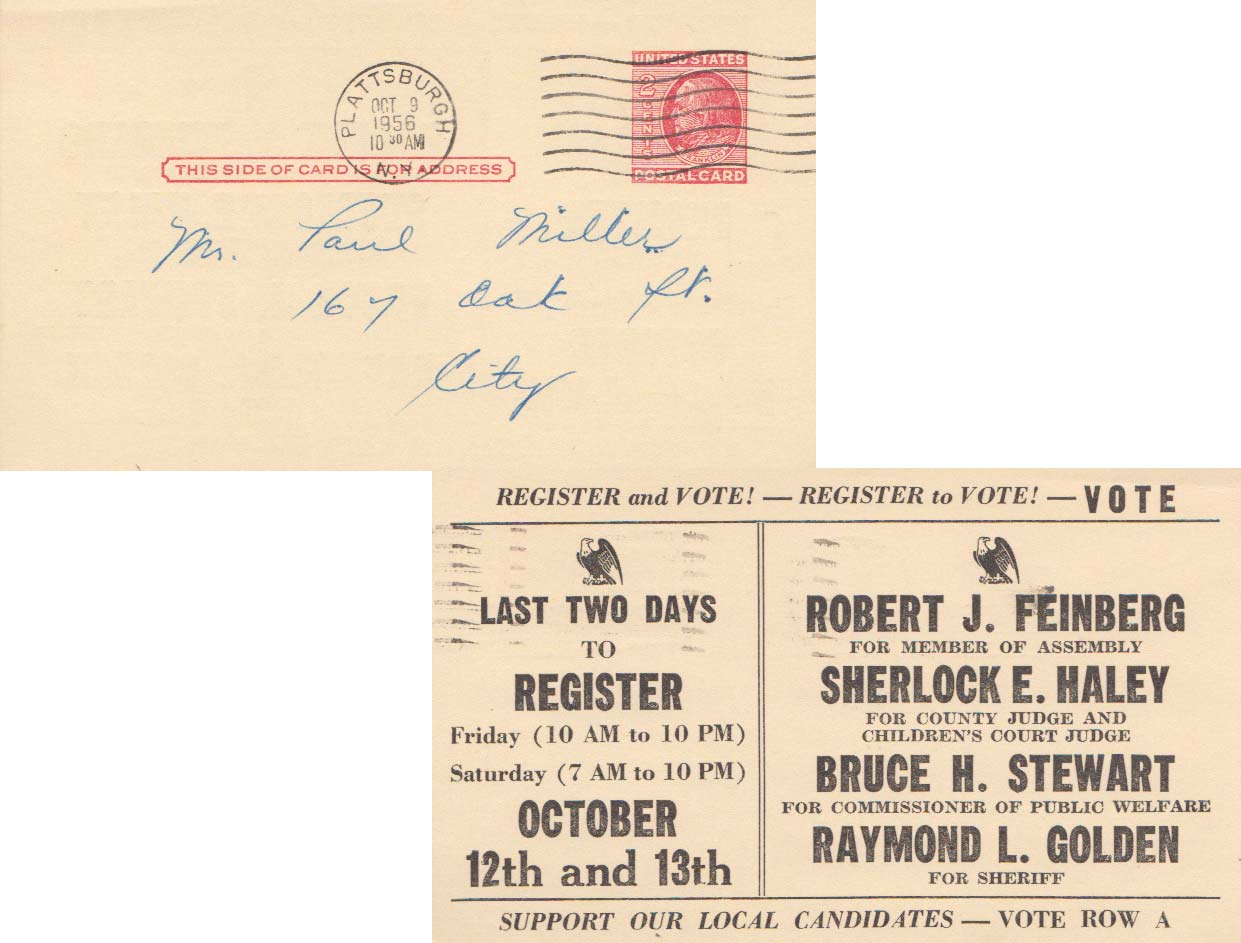 PLATTSBURGH
OCT 9
1956
10 30 AM
N.Y.
UNITED STATES
2 CENTS
FRANKLIN
POSTAL CARD
THIS SIDE OF CARD IS FOR ADDRESS
Mr. Paul Miller
167 Oak St.
City
REGISTER and VOTE! — REGISTER to VOTE! — VOTE
LAST TWO DAYS
TO
REGISTER
Friday (10 AM to 10 PM)
Saturday (7 AM to 10 PM)
OCTOBER
12th and 13th
ROBERT J. FEINBERG
FOR MEMBER OF ASSEMBLY
SHERLOCK E. HALEY
FOR COUNTY JUDGE AND
CHILDREN'S COURT JUDGE
BRUCE H. STEWART
FOR COMMISSIONER OF PUBLIC WELFARE
RAYMOND L. GOLDEN
FOR SHERIFF
SUPPORT OUR LOCAL CANDIDATES — VOTE ROW A